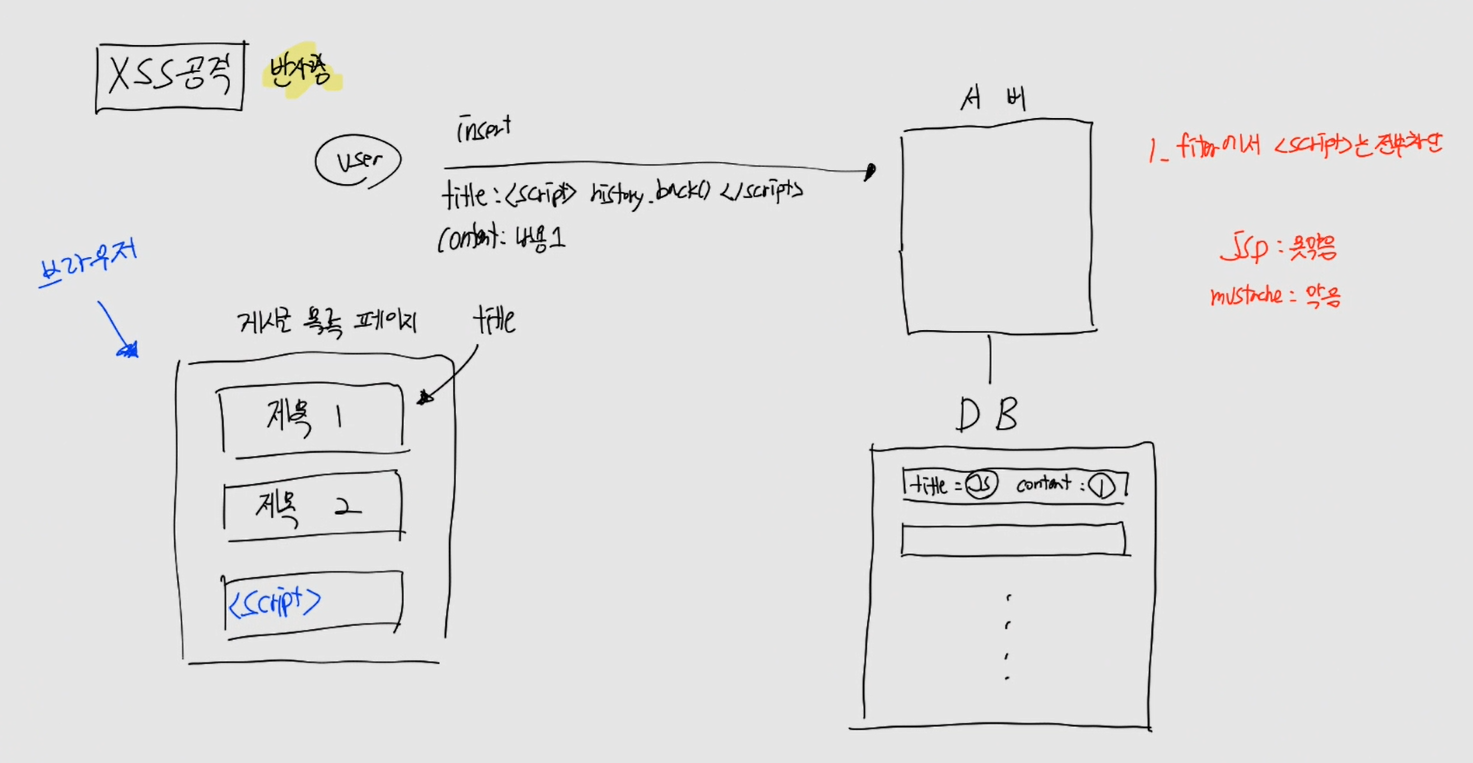 XSS공격 반사형
insert
user
title : <script> history.back() </script>
content : 내용1
서버
1_ filter에서 <script>는 전부차단
JSP : 못막음
mustache : 막음
브라우저
게시글 목록 페이지
title
제목 1
제목 2
<script>
DB
title = JS content : 1